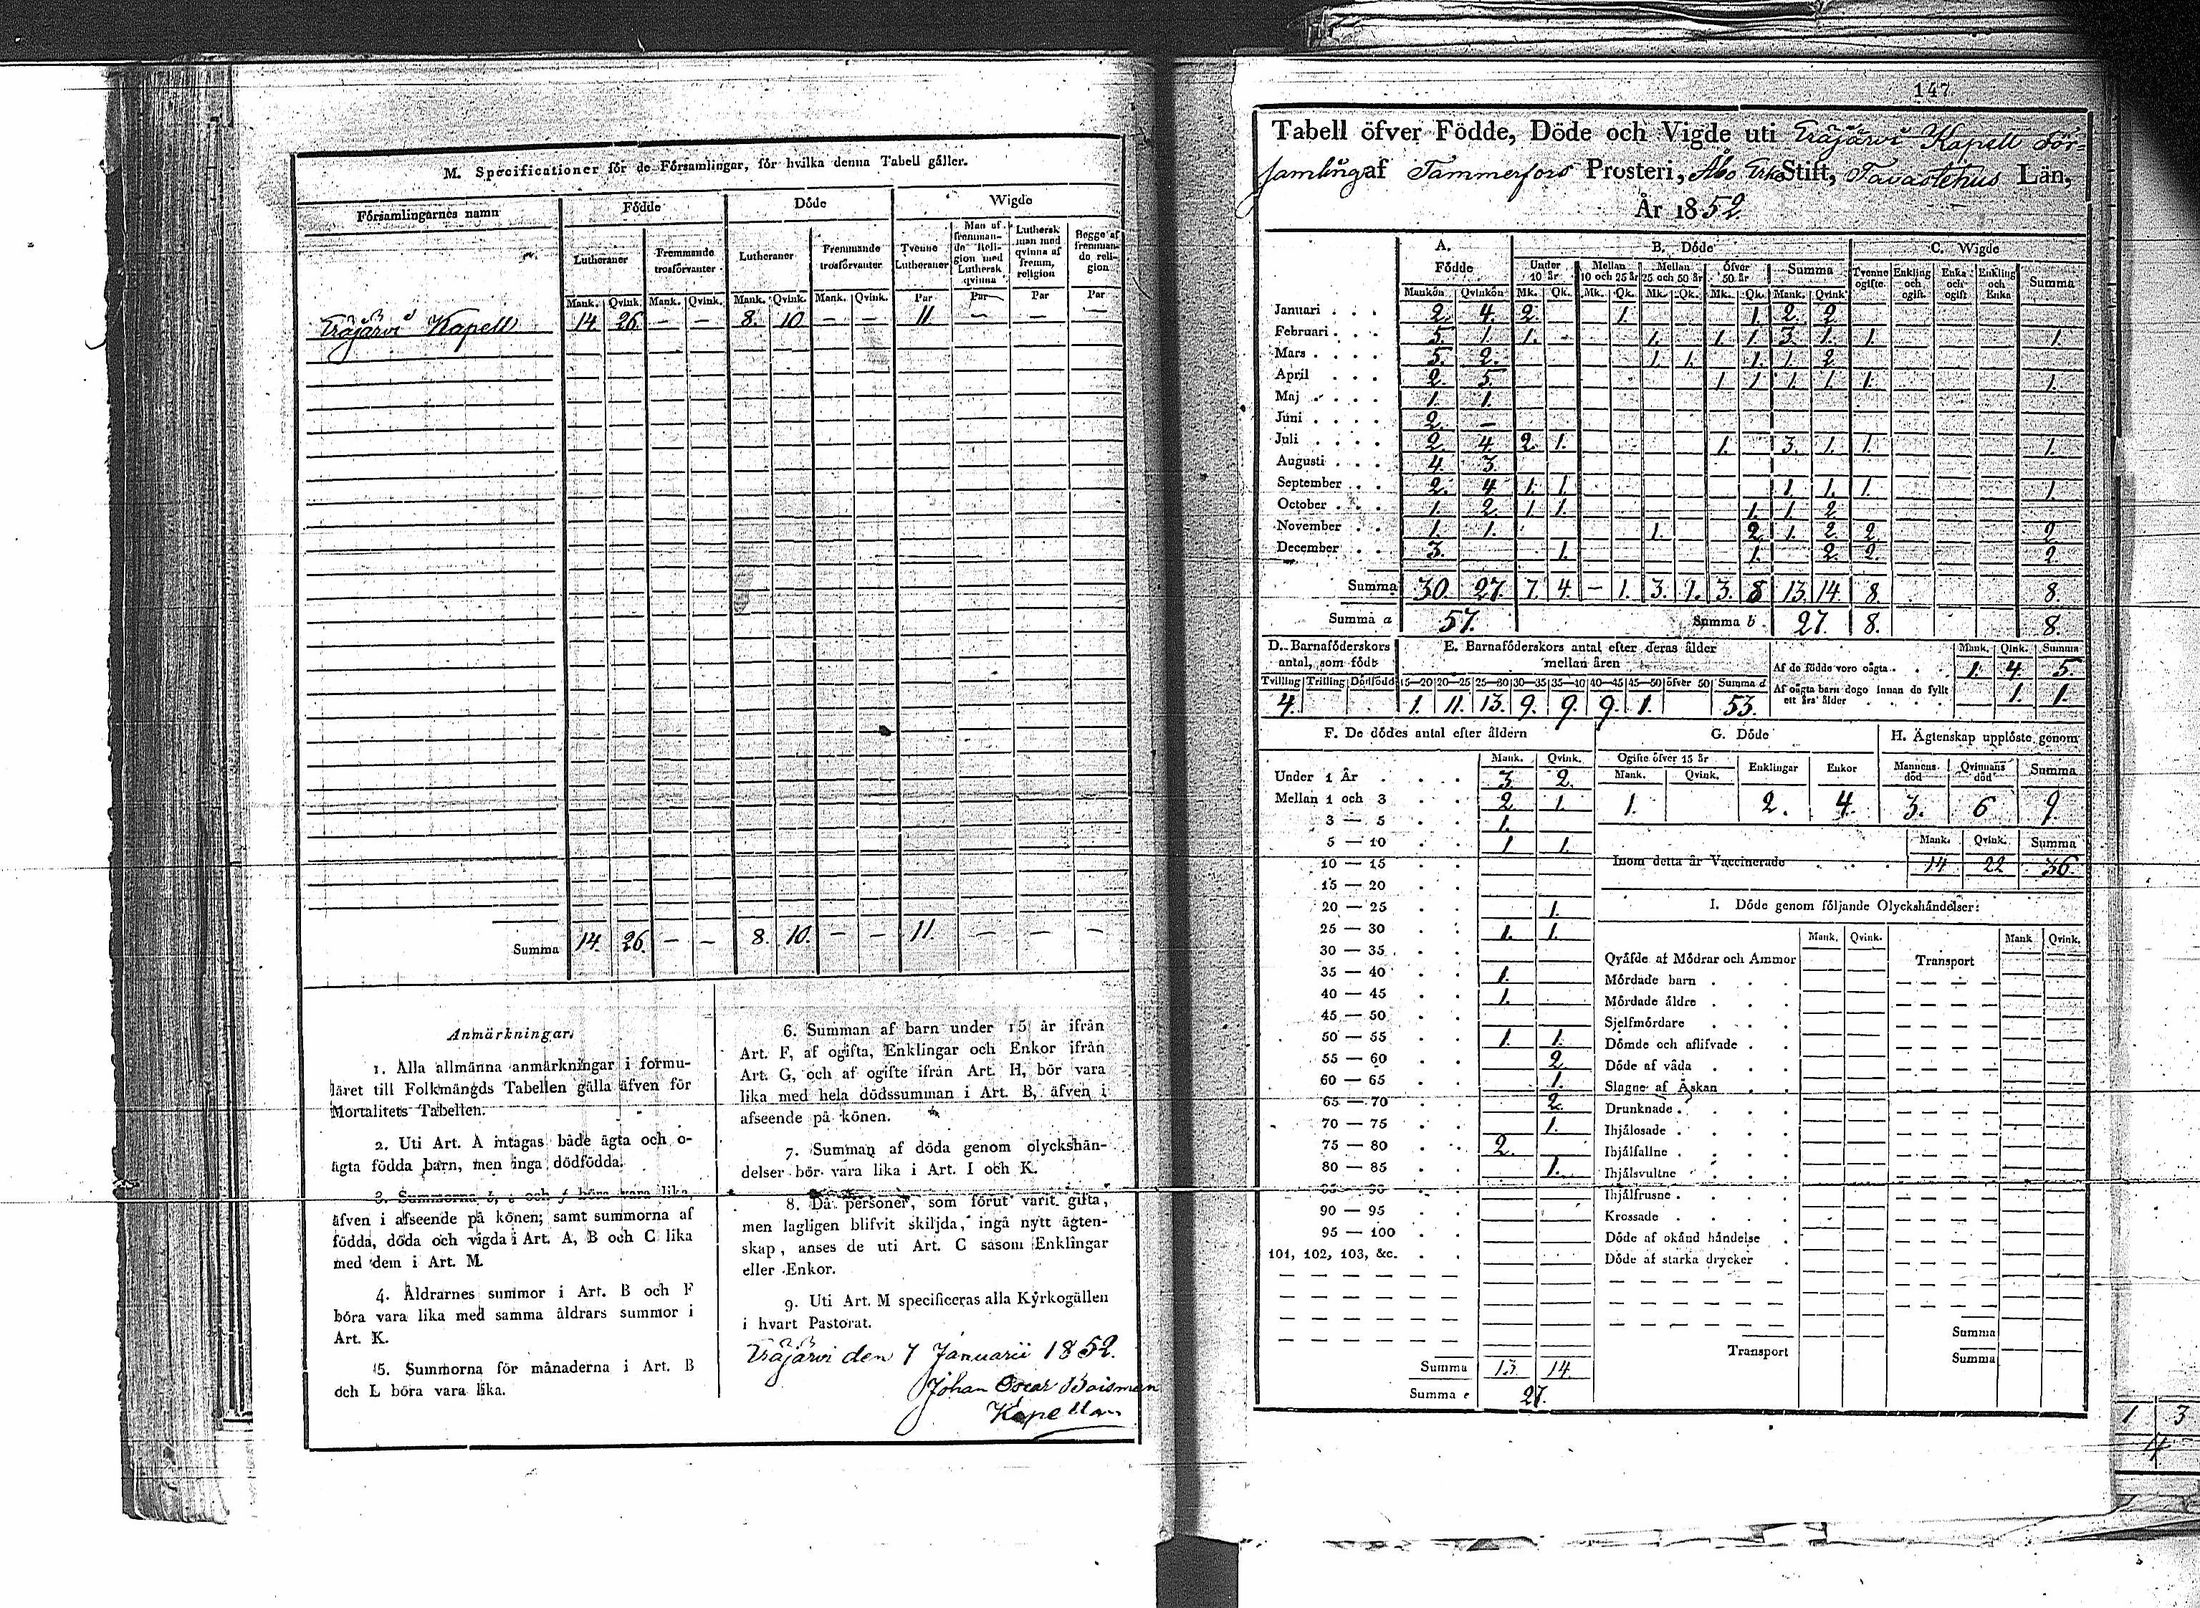 M. Specificationer för de Församlingar, för hvilka denna Tabell gäller.
Församlingarnes namn Födde Döde Wigde
Lutheraner Fremmande trosförvanter Lutheraner Fremmande trosförvanter Tvenne Lutheraner Man af fremmande Religion med Luthersk qvinna Luthersk man med qvinna af fremm. religion Begge af fremmande religion
Mank. Qvink. Mank. Qvink. Mank. Qvink. Mank. Qvink. Par Par Par Par
Eräjärvi Kapell 14. 26. — — 8. 10. — — 11 — — —
Summa 14. 26. — — 8. 10. — — 11. — — —
Anmärkningar.
1. Alla allmänna anmärkningar i formu-
läret till Folkmängds Tabellen gälla äfven för
Mortalitets Tabellen.
2. Uti Art. A intagas både ägta och o-
ägta födda barn, men inga dödfödda.
3. Summorna b, e och f böra vara lika,
äfven i afseende på könen; samt summorna af
födda, döda och vigda i Art. A, B och C lika
med dem i Art. M.
4. Åldrarnes summor i Art. B och F
böra vara lika med samma åldrars summor i
Art. K.
5. Summorna för månaderna i Art. B
och L böra vara lika.
6. Summan af barn under 15 år ifrån
Art. F, af ogifta, Enklingar och Enkor ifrån
Art. G, och af ogifte ifrån Art. H, bör vara
lika med hela dödssumman i Art. B, äfven i
afseende på könen.
7. Summan af döda genom olyckshän-
delser bör vara lika i Art. I och K.
8. Då personer, som förut varit gifta,
men lagligen blifvit skiljda, ingå nytt ägten-
skap, anses de uti Art. C såsom Enklingar
eller Enkor.
9. Uti Art. M specificeras alla Kyrkogällen
i hvart Pastorat.
Eräjärvi den 7 Januarii 1852.
Johan Oscar Boisman
Kapellan
147
Tabell öfver Födde, Döde och Vigde uti Eräjärvi Kapell För-
samling af Tammerfors Prosteri, Åbo Erke Stift, Tavastehus Län,
År 1852
A. Födde B. Döde C. Wigde
Under 10 år Mellan 10 och 25 år Mellan 25 och 50 år Öfver 50 år Summa Tvenne ogifte Enkling och ogift Enka och ogift Enkling och Enka Summa
Mankön Qvinkön Mk. Qk. Mk. Qk. Mk. Qk. Mk. Qk. Mank. Qvink
Januari . . . 2. 4. 2. 1. 1. 2. 2.
Februari . . . 5. 1. 1. 1. 1. 1. 3. 1. 1. 1.
Mars . . . . 5. 2. 1. 1. 1. 1. 2.
April . . . 2. 5. 1 1 1. 1. 1. 1.
Maj . . . . 1. 1.
Juni . . . . 2. —
Juli . . . . 2. 4 2. 1. 1. 3. 1. 1. 1.
Augusti . . . 4. 3.
September . . 2. 4 1. 1. 1. 1. 1. 1.
October . . . 1. 2. 1. 1. 1. 1. 2.
November . . 1. 1. 1. 2. 1. 2. 2. 2.
December . . 3. 1. 1. 2. 2. 2.
Summa 30. 27. 7. 4. — 1. 3. 1. 3. 8 13. 14. 8. 8.
Summa a 57. Summa b . 27. 8. 8.
D. Barnaföderskors antal, som födt
Tvilling Trilling Dödfödd
4.
E. Barnaföderskors antal efter deras ålder
mellan åren
15—20 20—25 25—30 30—35 35—40 40—45 45—50 öfver 50 Summa d
1. 11. 13. 9. 9. 9. 1. 53.
Mank. Qink. Summa
Af de födde voro oägta . . . 1. 4. 5.
Af oägta barn dogo innan de fyllt
ett års ålder . . . . 1. 1.
F. De dödes antal efter åldern
Mank. Qvink.
Under 1 År . . . . 3. 2.
Mellan 1 och 3 . . 2. 1.
3 — 5 . . 1.
5 — 10 . . 1 1.
10 — 15 . .
15 — 20 . .
20 — 25 . . 1.
25 — 30 . . 1. 1.
30 — 35 . .
35 — 40 . . 1.
40 — 45 . . 1.
45 — 50 . .
50 — 55 . . 1. 1.
55 — 60 . . 2.
60 — 65 . . 1.
65 — 70 . . 2.
70 — 75 . . 1.
75 — 80 . . 2.
80 — 85 . . 1.
90 — 95 . .
95 — 100 . .
101, 102, 103, &c. . .
Summa 13. 14.
Summa e 27.
G. Döde
Ogifte öfver 15 år Enklingar Enkor
Mank. Qvink.
1. 2. 4.
H. Ägtenskap upplöste genom
Mannens död Qvinnans död Summa
3. 6 9.
Mank. Qvink. Summa
Inom detta år Vaccinerade . . . 14 22 36.
I. Döde genom följande Olyckshändelser:
Mank. Qvink. Mank Qvink.
Qväfde af Mödrar och Ammor Transport
Mördade barn . . .
Mördade äldre . . .
Sjelfmördare . . .
Dömde och aflifvade . .
Döde af våda . . .
Slagne af Åskan . .
Drunknade . . . .
Ihjälosade . . . .
Ihjälfallne . . . .
Ihjälsvultne . . .
Ihjälfrusne . . . .
Krossade . . . .
Döde af okänd händelse .
Döde af starka drycker .
Summa
Transport Summa
1 3
4